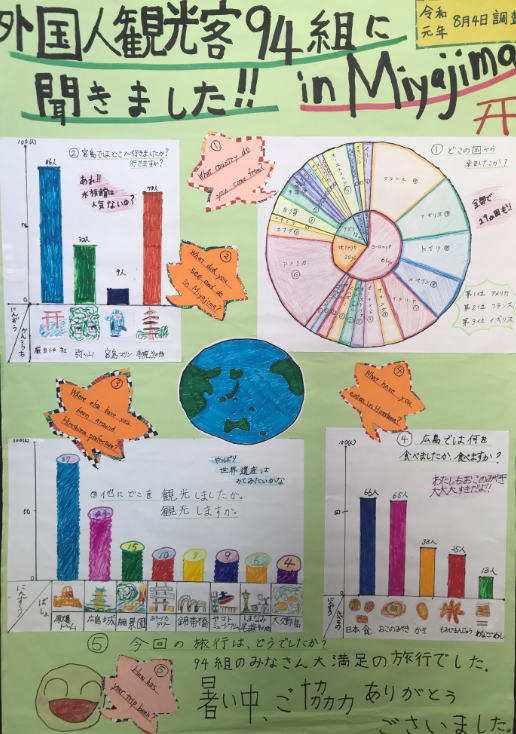 外国人観光客94組に
聞きました!! in Miyajima
令和元年 8月4日調査
①
What country do you come from?
① どこの国から
来ましたか?
全部で
29カ国も!
フランス
イギリス
ドイツ
スペイン
アメリカ
ヨーロッパ
第1位 アメリカ
第2位 フランス
第3位 イギリス
② 宮島ではどこへ行きましたか?
行きますか?
100(人)
86人
あれ!!
水族館は
人気ないの?
32人
9人
にんずう
②
What did you see and do in Miyajima?
③
Where else have you been around Hiroshima prefecture?
100(人)
50
やっぱり
世界遺産は
③ 他にどこを 観光しましたか。
観光しますか。
15
10
9
9
6
4
にんずう
ばしょ
原爆ドーム
広島城
縮景園
錦帯橋
④
What have you eaten in Hiroshima?
100(人)
④ 広島では何を
食べましたか、食べますか?
わたしもおこのみやき
大大大すきだよ!!
66人
65人
33人
13人
日本食
おこのみやき
かき
もみじまんじゅう
あなごめし
⑤ 今回の旅行は、どうでしたか?
94組のみなさん大満足の旅行でした。
⑤
How was your trip been?
暑い中、ご協力ありがとう
ございました。